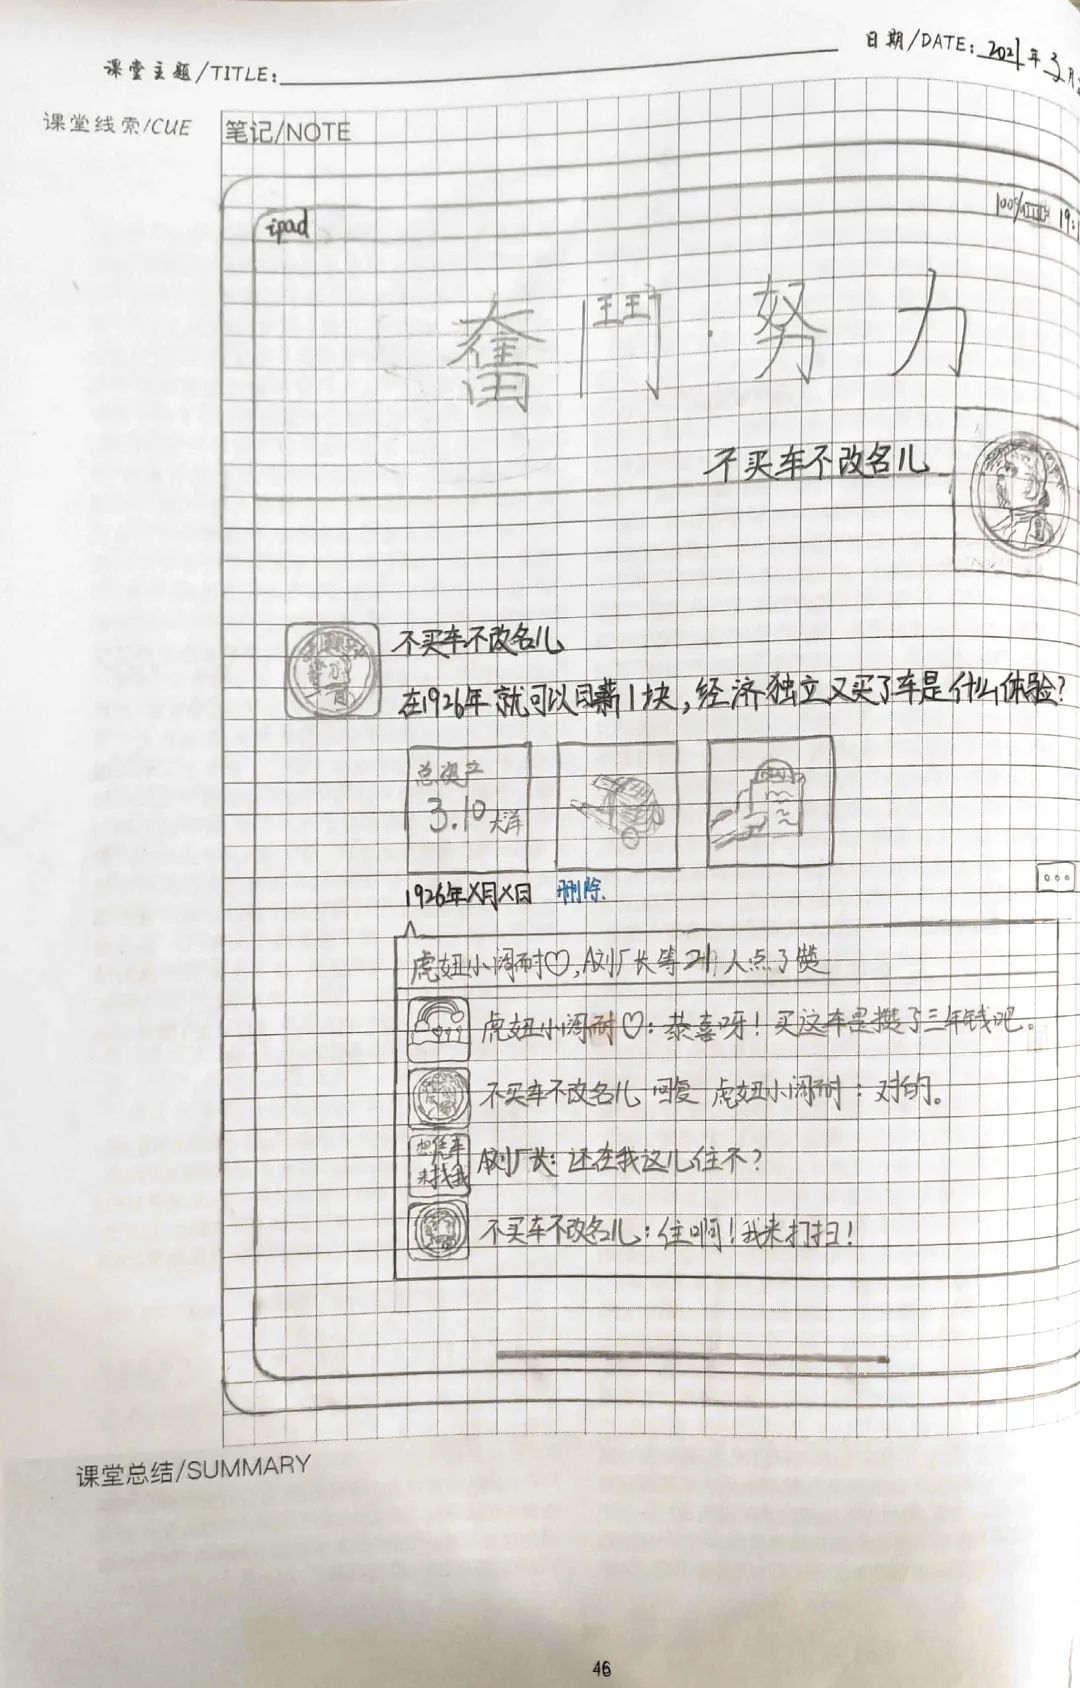 日期/DATE: 2021年3月
课堂主题/TITLE:
课堂线索/CUE
笔记/NOTE
ipad
100% 19:1
奮鬥·努力
不买车不改名儿
不买车不改名儿
在1926年就可以日薪1块,经济独立又买了车是什么体验?
总资产
3.10大洋
1926年X月X日 删除
虎妞小闹耐♡,A刘厂长等 人点了赞
虎妞小闹耐♡:恭喜呀!买这车是攒了三年钱吧。
不买车不改名儿 回复 虎妞小闹耐:对的。
想凭车
来找我
A刘厂长:还在我这儿住不?
不买车不改名儿:住啊!我来打扫!
课堂总结/SUMMARY
46